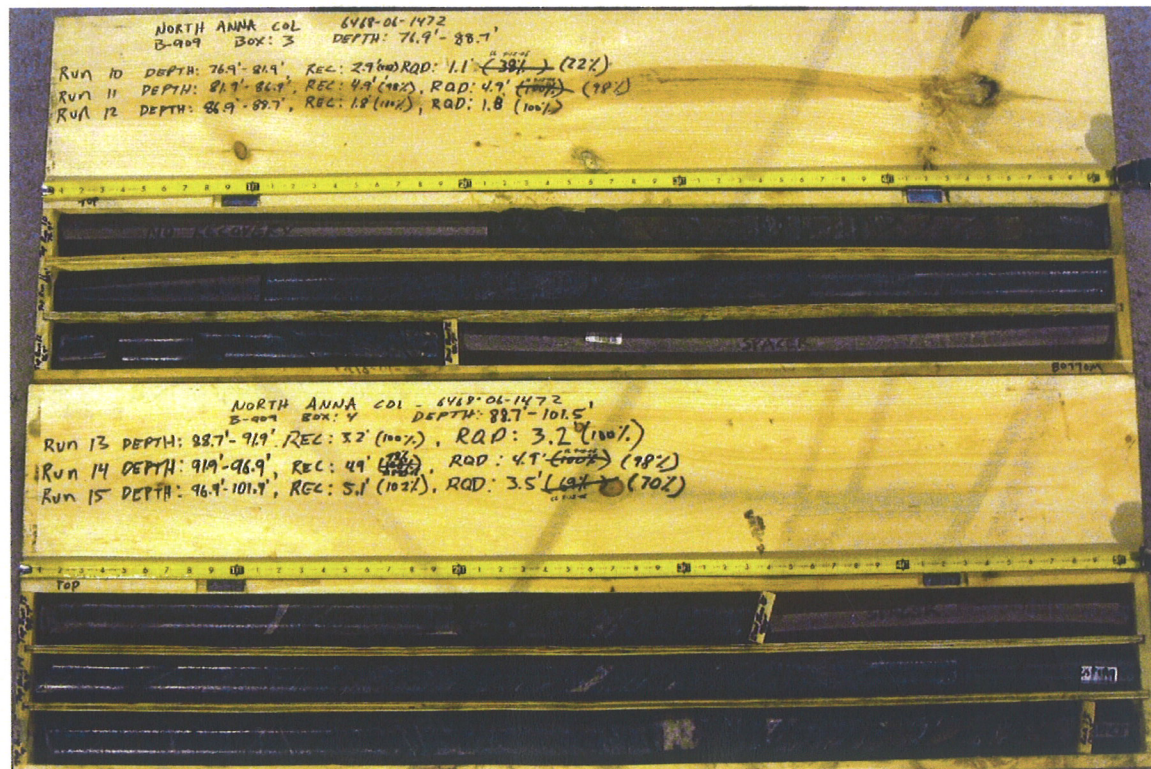 NORTH ANNA COL 6468-06-1472
B-909 BOX: 3 DEPTH: 76.9'-88.7'
Run 10 DEPTH: 76.9'-81.9' REC: 2.9' RQD: 1.1' (38%) (22%)
Run 11 DEPTH: 81.9'-86.9', REC: 4.9' (98%), RQD: 4.9' (100%) (98%)
Run 12 DEPTH: 86.9'-88.7', REC: 1.8' (100%), RQD: 1.8 (100%)
TOP
NO RECOVERY
SPACER
BOTTOM
NORTH ANNA COL - 6468-06-1472
B-909 BOX: 4 DEPTH: 88.7'-101.5'
Run 13 DEPTH: 88.7'-91.9' REC: 3.2' (100%), RQD: 3.2' (100%)
Run 14 DEPTH: 91.9'-96.9', REC: 4.9' RQD: 4.9' (100%) (98%)
Run 15 DEPTH: 96.9'-101.9', REC: 5.1' (102%), RQD: 3.5' (69%) (70%)
TOP